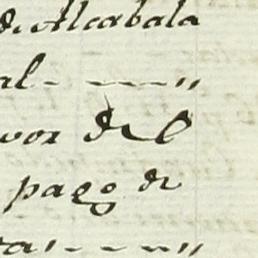 de Alcabala
al - - - - "
vor del
pago de
ra " - - - "